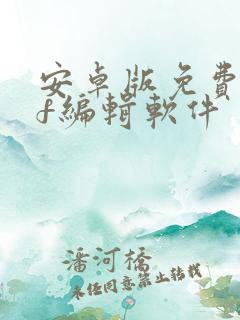 安卓版免費
f編輯軟件
潘河橋
未經同意禁止轉載